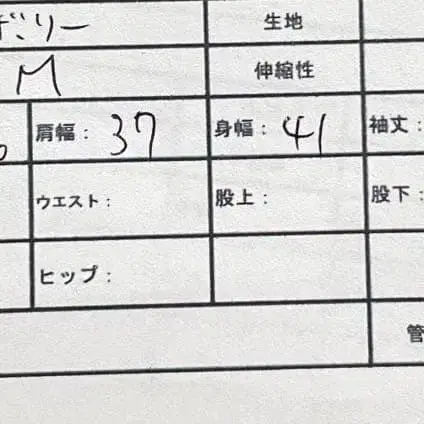 生地
M 伸縮性
肩幅: 37 身幅: 41 袖丈:
ウエスト: 股上: 股下:
ヒップ:
管